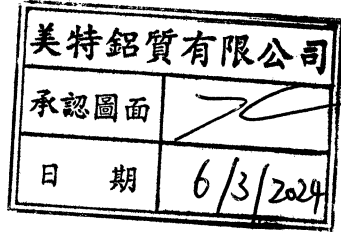 美特鋁質有限公司
承認圖面
日 期 6/3/2024